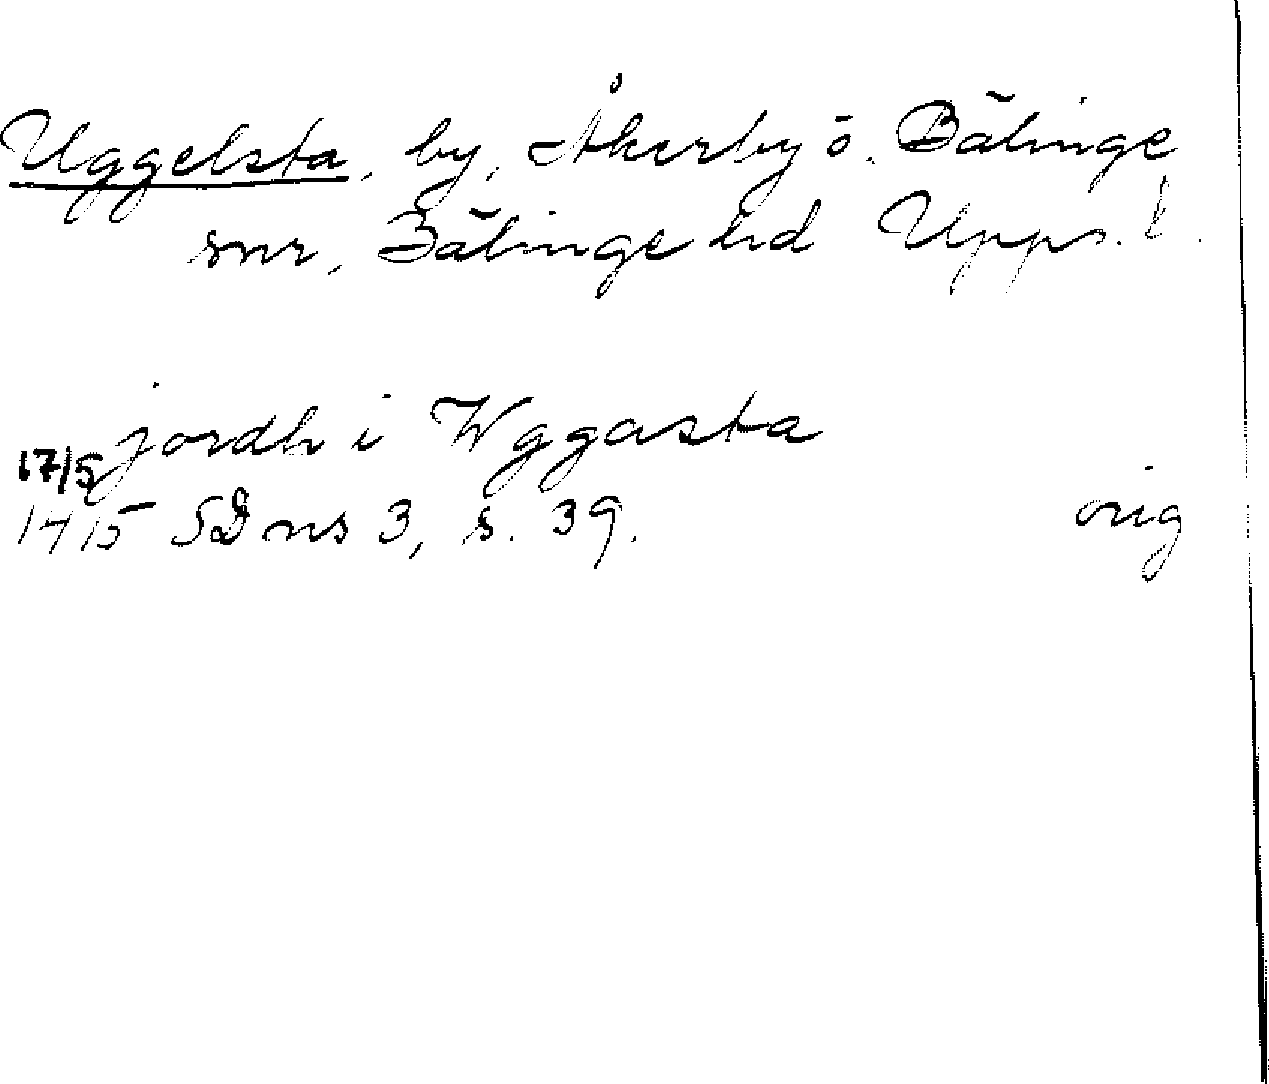 Uggelsta, by, Åkerby o. Bälinge
snr, Bälinge hd Upps. l.
jordh i Wggasta
17/5
1415 SD ns 3, s. 39. orig